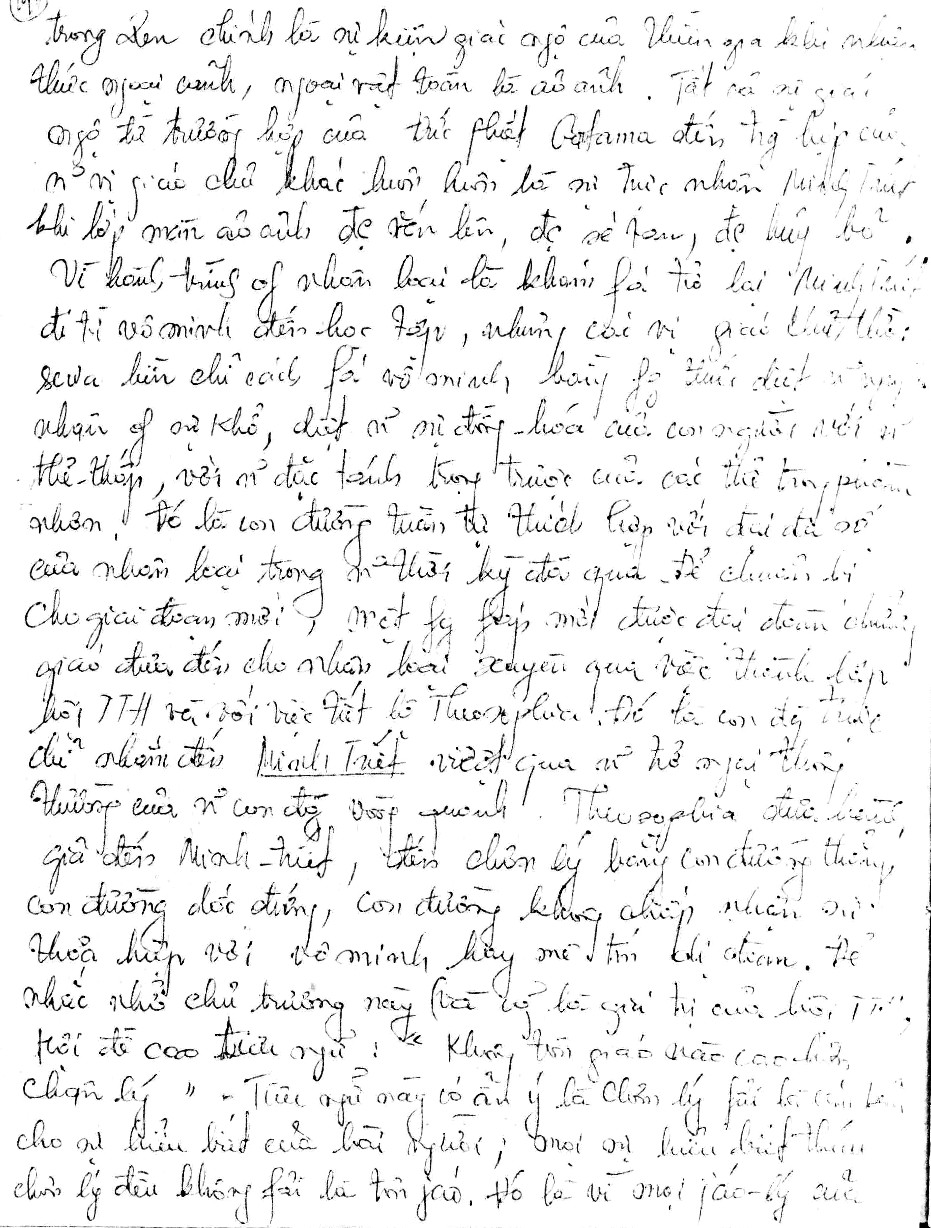 trong Zen chính là sự kiện giác ngộ của thiền gia khi nhận
thức ngoại cảnh, ngoại vật toàn là ảo ảnh. Tất cả sự giác
ngộ từ trường hợp của đức Phật Gotama đến trg hợp của
n~ vị giáo chủ khác luôn luôn là sự trực nhận Minh Triết
khi lớp màn ảo ảnh đc vén lên, đc xé tan, đc hủy bỏ.
Vì hành trình of nhân loại là khám fá trở lại Minh Triết
đi từ vô minh đến học tập, nhưng các vị giáo chủ thời
xưa liền chỉ cách fá vô minh bằng fg thức diệt n~ nguyên
nhân of sự khổ, diệt n~ sự đồng-hóa của con người với n~
thể-thấp, với n~ đặc tánh trọng trược của các thể trong phàm
nhơn. Đó là con đường tuần tự thích hợp với đại đa số
của nhơn loại trong n~ thời kỳ đã qua. Để chuẩn bị
cho giai đoạn mới, một fg fáp mới được đại đoàn chưởng
giáo đưa đến cho nhân loại xuyên qua việc thành lập
hội TTH và với việc tiết lộ Theosophia. Đó là con đg trực
chỉ nhắm đến Minh Triết vượt qua n~ trở ngại thông
thường của n~ con đg vòng quanh. Theosophia đưa hành
giả đến Minh-triết, đến chơn lý bằng con đường thẳng,
con đường dốc đứng, con đường không chấp nhận sự
thỏa hiệp với vô minh hay mê tín dị đoan. Để
nhắc nhở chủ trương này (và cg là giá trị của hội TTH,
Hội đề cao tiêu ngữ : " Không tôn giáo nào cao hơn
chân lý " - Tiêu ngữ này có ẩn ý là chơn lý fải là căn bản
cho sự hiểu biết của loài người ; mọi sự hiểu biết thiếu
chơn lý đều không fải là tôn jáo. Đó là vì mọi jáo-lý của